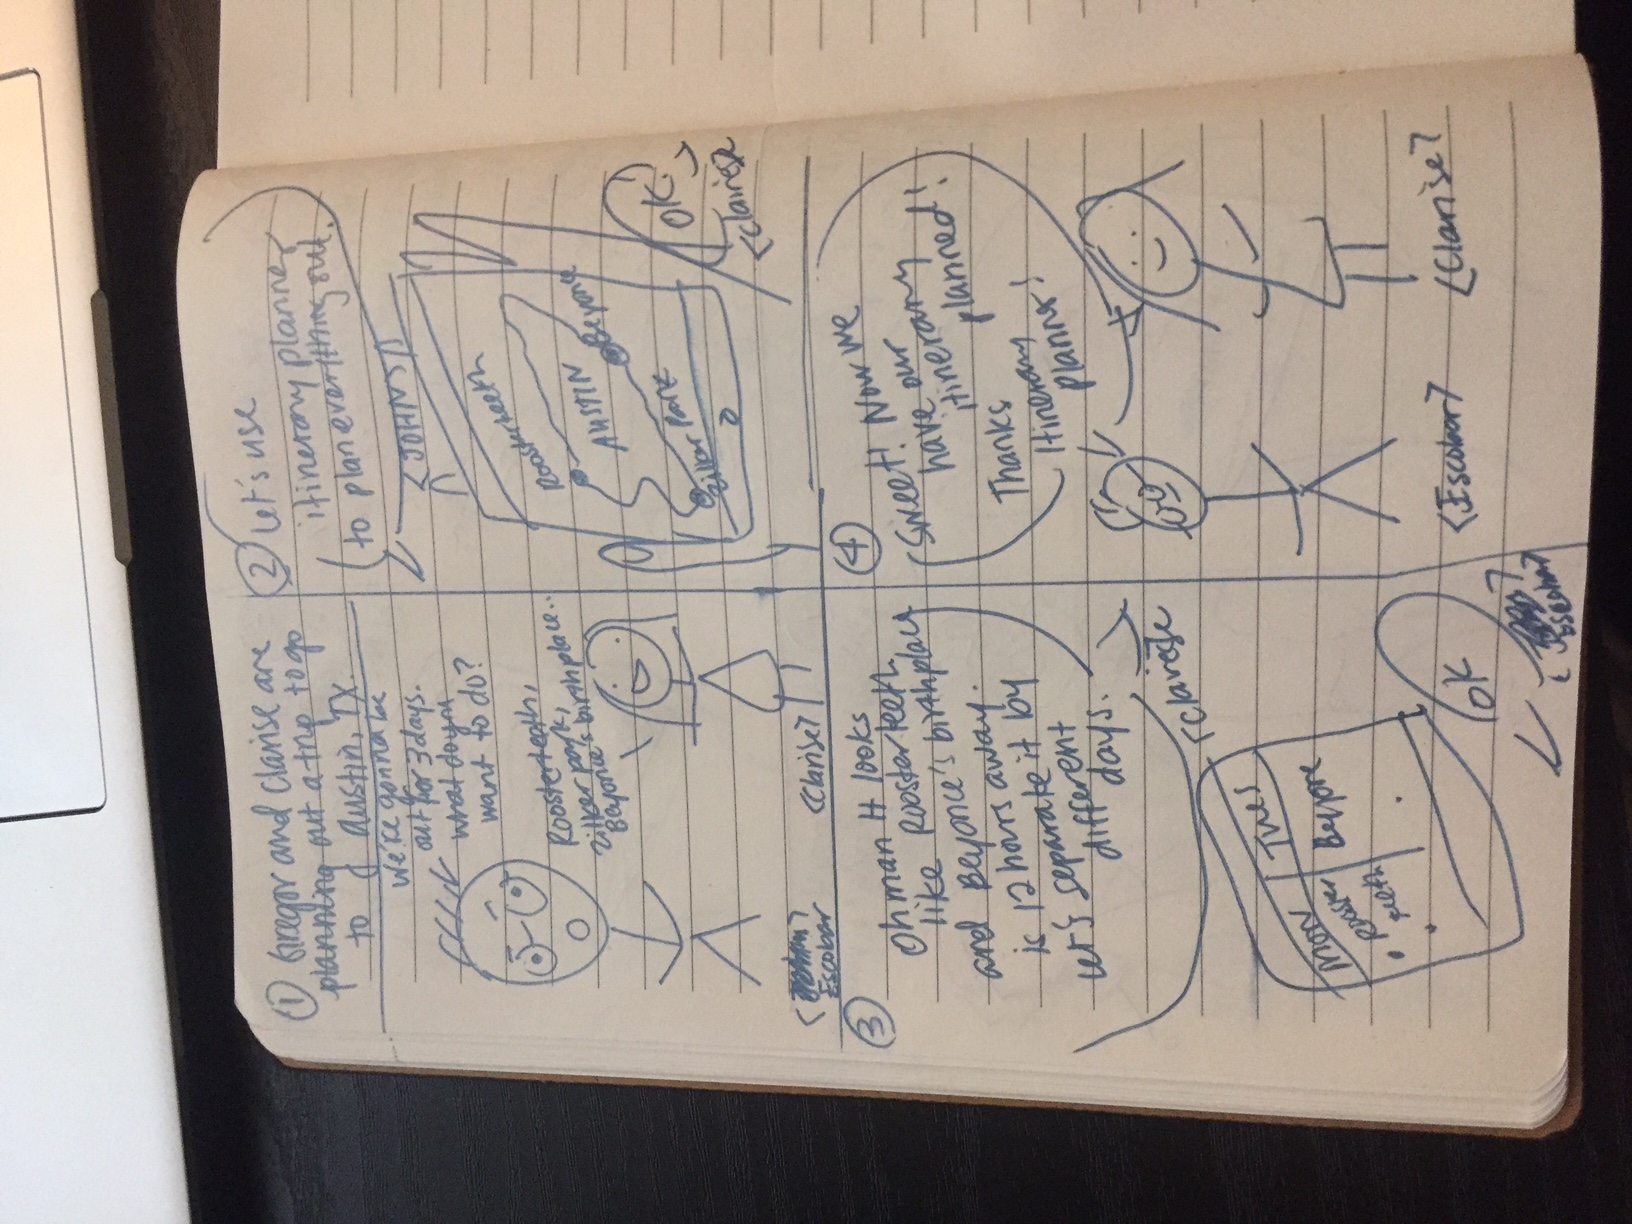 1
Gregor and Clarise are
planning out a trip to go
to Austin, TX.
We're gonna be
out for 3 days.
what do you
want to do?
Roosterteeth,
zilker park,
Beyonce's birthplace..
Escobar
<Clarise>
2
Let's use
itinerary planner
to plan everything out.
<JOHN>
Roosterteeth
AUSTIN
Beyonce
Zilker Park
OK!
3
Oh man it looks
like Roosterteeth
and Beyonce's birthplace
is 12 hours away.
Let's separate it by
different
days.
Mon
Tues
Rooster
teeth
Beyonce
OK
Escobar
4
Sweet! Now we
have our
itinerary
planned!
Thanks
Itinerary
planner!
<Escobar>
<Clarise>